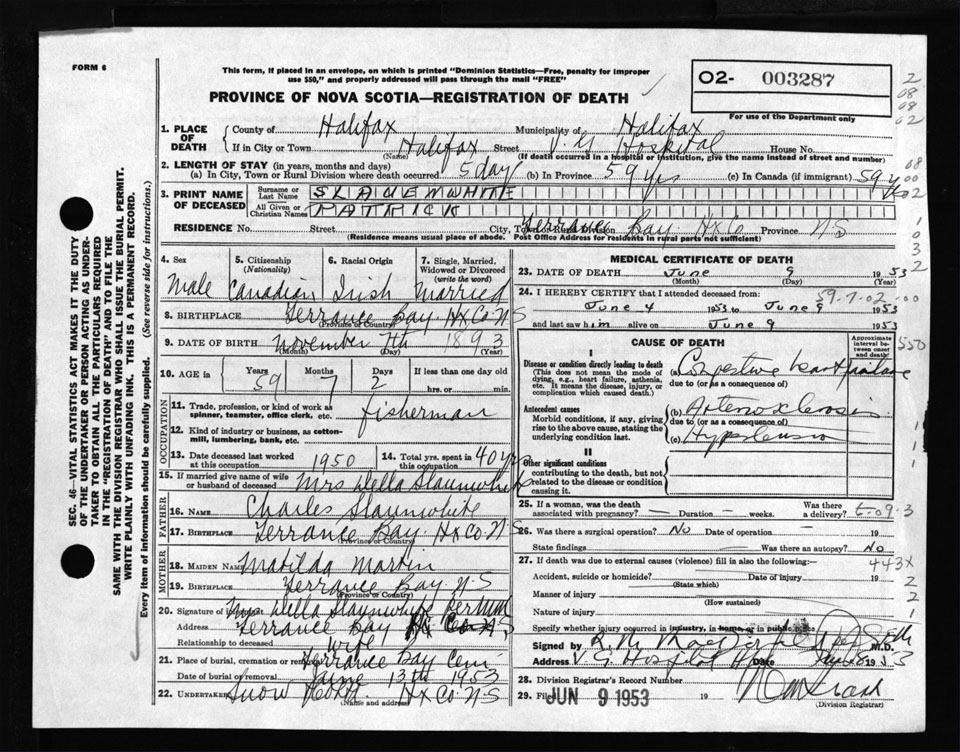 FORM 6
This form, if placed in an envelope, on which is printed "Dominion Statistics—Free, penalty for improper
use $50," and properly addressed will pass through the mail "FREE"
PROVINCE OF NOVA SCOTIA—REGISTRATION OF DEATH
O2- 003287
For use of the Department only
1. PLACE OF DEATH County of Halifax Municipality of Halifax
If in City or Town Halifax (Name) Street V. G. Hospital House No.
(If death occurred in a hospital or institution, give the name instead of street and number)
2. LENGTH OF STAY (in years, months and days)
(a) In City, Town or Rural Division where death occurred 5 days (b) In Province 59 yrs (c) In Canada (if immigrant) 59 y
3. PRINT NAME OF DECEASED Surname or Last Name SLAUENWHITE
All Given or Christian Names PATRICK
RESIDENCE No. Street City, Town or Rural Division Terrance Bay Hx Co Province N S
(Residence means usual place of abode. Post Office Address for residents in rural parts not sufficient)
4. Sex Male
5. Citizenship (Nationality) Canadian
6. Racial Origin Irish
7. Single, Married, Widowed or Divorced (write the word) Married
8. BIRTHPLACE Terrance Bay. Hx Co. N S
(Province or Country)
9. DATE OF BIRTH November 7th 1893
(Month) (Day) (Year)
10. AGE in Years 59 Months 7 Days 2 If less than one day
hrs. or min.
OCCUPATION
11. Trade, profession, or kind of work as spinner, teamster, office clerk, etc. fisherman
12. Kind of industry or business, as cotton-mill, lumbering, bank, etc.
13. Date deceased last worked at this occupation 1950
14. Total yrs. spent in this occupation 40 yrs
15. If married give name of wife or husband of deceased Mrs Della Slaunwhite
FATHER
16. NAME Charles Slaunwhite
17. BIRTHPLACE Terrance Bay. Hx Co. N S
(Province or Country)
MOTHER
18. MAIDEN NAME Matilda Martin
19. BIRTHPLACE Terrance Bay N. S
(Province or Country)
20. Signature of informant Mrs Della Slaunwhite per
Address Terrance Bay Hx Co N S
Relationship to deceased Wife
21. Place of burial, cremation or removal Terrance Bay Cem
Date of burial or removal June 13th 1953
22. UNDERTAKER Snow Hx Co N S
(Name and address)
MEDICAL CERTIFICATE OF DEATH
23. DATE OF DEATH June 9 1953
24. I HEREBY CERTIFY that I attended deceased from:
59-7-02-00
June 4 1953 to June 9 1953
and last saw him alive on June 9 1953
CAUSE OF DEATH
Approximate interval between onset and death
I
Disease or condition directly leading to death
(This does not mean the mode of dying, e.g., heart failure, asthenia, etc. It means the disease, injury, or complication which caused death.)
(a) Congestive heart failure
due to (or as a consequence of)
Antecedent causes
Morbid conditions, if any, giving rise to the above cause, stating the underlying condition last.
(b) Arteriosclerosis
due to (or as a consequence of)
(c) Hypertension
II
Other significant conditions
contributing to the death, but not related to the disease or condition causing it.
25. If a woman, was the death associated with pregnancy? — Duration — weeks. Was there a delivery?
26. Was there a surgical operation? No Date of operation 19
State findings Was there an autopsy? No
27. If death was due to external causes (violence) fill in also the following:—
443X
Accident, suicide or homicide? Date of injury 19
(State which)
Manner of injury
(How sustained)
Nature of injury
Specify whether injury occurred in industry, in home, or in public place
Signed by M.D.
Address V. G. Hospital Date 1953
28. Division Registrar's Record Number
29. Filed JUN 9 1953 19
(Division Registrar)
SEC. 46—VITAL STATISTICS ACT MAKES IT THE DUTY
OF THE UNDERTAKER OR PERSON ACTING AS UNDER-
TAKER TO OBTAIN ALL THE PARTICULARS REQUIRED
IN THE "REGISTRATION OF DEATH" AND TO FILE THE
SAME WITH THE DIVISION REGISTRAR WHO SHALL ISSUE THE BURIAL PERMIT.
WRITE PLAINLY WITH UNFADING INK. THIS IS A PERMANENT RECORD.
Every item of information should be carefully supplied. (See reverse side for instructions.)